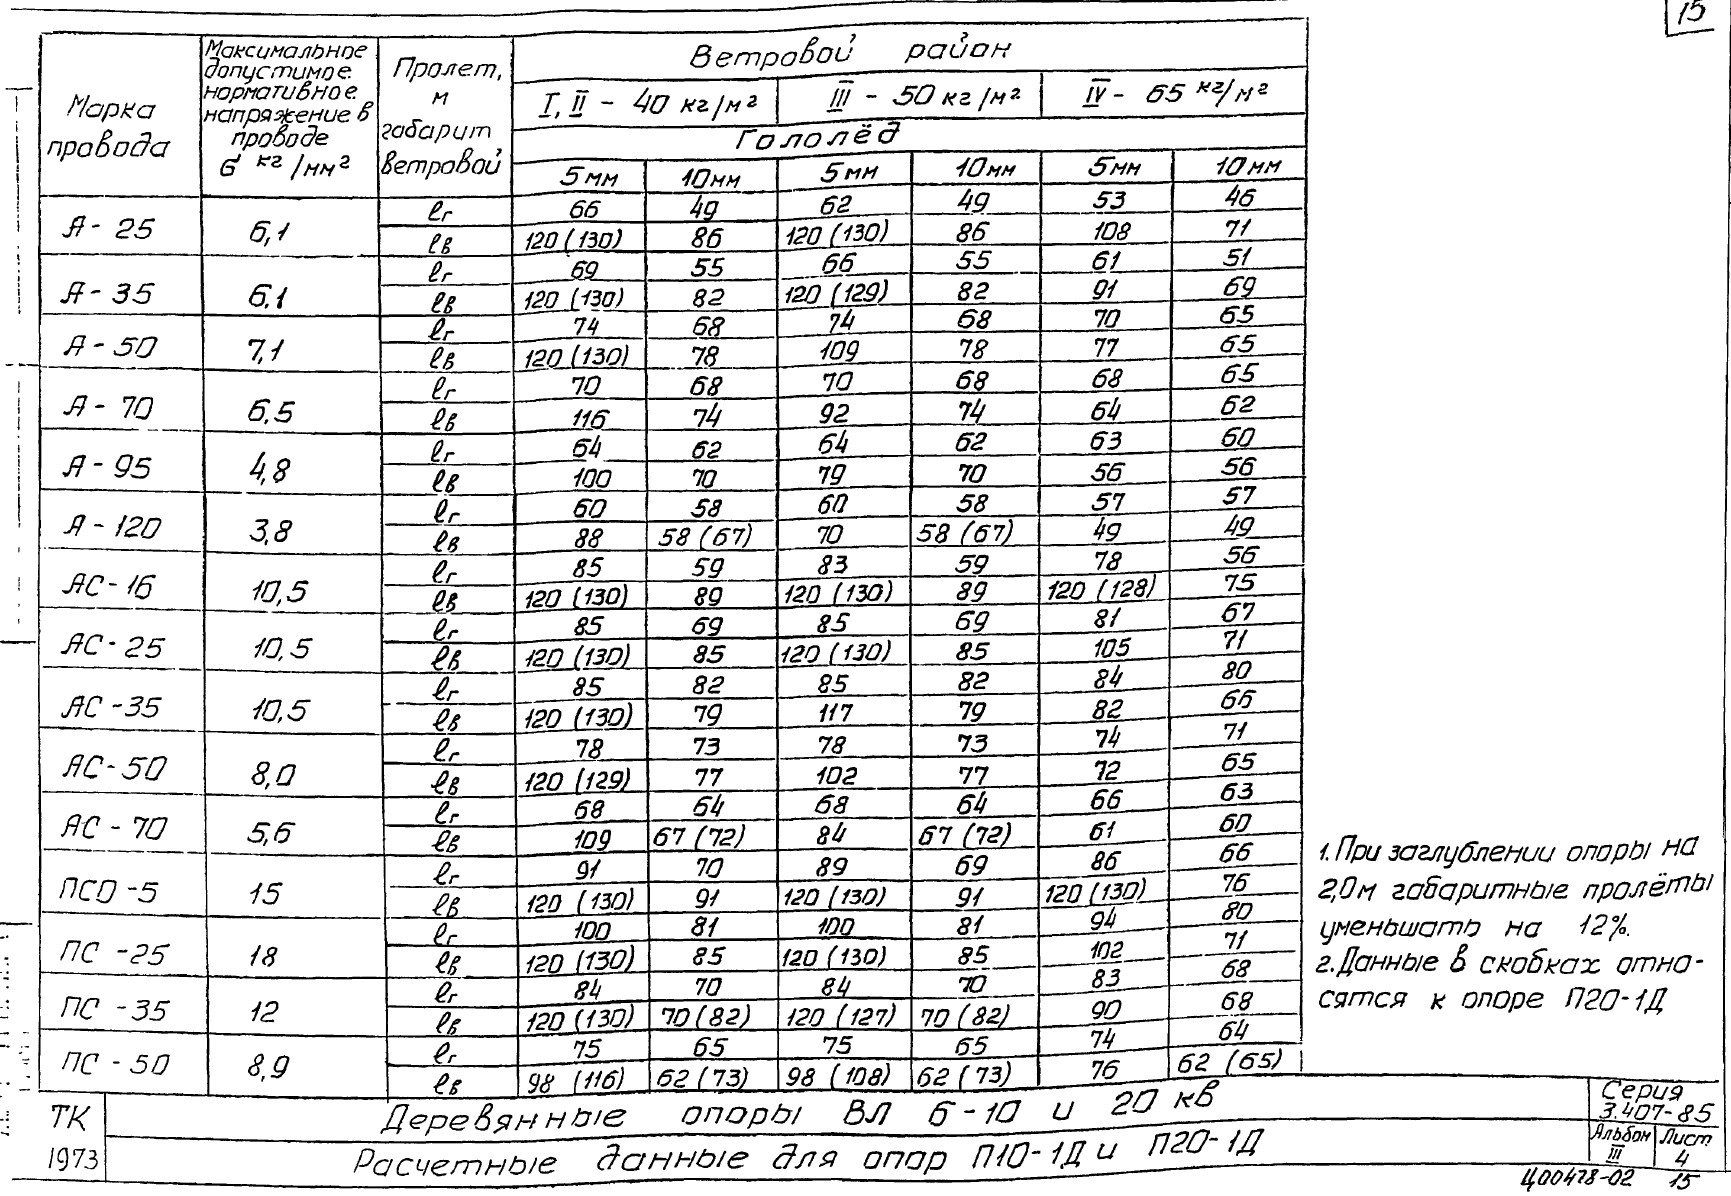 15
Марка провода | Максимальное допустимое нормативное напряжение в проводе σ кг/мм² | Пролет, м габарит ветровой | Ветровой район
I, II - 40 кг/м² | III - 50 кг/м² | IV - 65 кг/м²
Гололёд
5мм | 10мм | 5мм | 10мм | 5мм | 10мм
А - 25 | 6,1 | ℓг | 66 | 49 | 62 | 49 | 53 | 46
ℓв | 120 (130) | 86 | 120 (130) | 86 | 108 | 71
А - 35 | 6,1 | ℓг | 69 | 55 | 66 | 55 | 61 | 51
ℓв | 120 (130) | 82 | 120 (129) | 82 | 91 | 69
А - 50 | 7,1 | ℓг | 74 | 68 | 74 | 68 | 70 | 65
ℓв | 120 (130) | 78 | 109 | 78 | 77 | 65
А - 70 | 6,5 | ℓг | 70 | 68 | 70 | 68 | 68 | 65
ℓв | 116 | 74 | 92 | 74 | 64 | 62
А - 95 | 4,8 | ℓг | 64 | 62 | 64 | 62 | 63 | 60
ℓв | 100 | 70 | 79 | 70 | 56 | 56
А - 120 | 3,8 | ℓг | 60 | 58 | 60 | 58 | 57 | 57
ℓв | 88 | 58 (67) | 70 | 58 (67) | 49 | 49
АС - 16 | 10,5 | ℓг | 85 | 59 | 83 | 59 | 78 | 56
ℓв | 120 (130) | 89 | 120 (130) | 89 | 120 (128) | 75
АС - 25 | 10,5 | ℓг | 85 | 69 | 85 | 69 | 81 | 67
ℓв | 120 (130) | 85 | 120 (130) | 85 | 105 | 71
АС - 35 | 10,5 | ℓг | 85 | 82 | 85 | 82 | 84 | 80
ℓв | 120 (130) | 79 | 117 | 79 | 82 | 66
АС - 50 | 8,0 | ℓг | 78 | 73 | 78 | 73 | 74 | 71
ℓв | 120 (129) | 77 | 102 | 77 | 72 | 65
АС - 70 | 5,6 | ℓг | 68 | 64 | 68 | 64 | 66 | 63
ℓв | 109 | 67 (72) | 84 | 67 (72) | 61 | 60
ПСО - 5 | 15 | ℓг | 91 | 70 | 89 | 69 | 86 | 66
ℓв | 120 (130) | 91 | 120 (130) | 91 | 120 (130) | 76
ПС - 25 | 18 | ℓг | 100 | 81 | 100 | 81 | 94 | 80
ℓв | 120 (130) | 85 | 120 (130) | 85 | 102 | 71
ПС - 35 | 12 | ℓг | 84 | 70 | 84 | 70 | 83 | 68
ℓв | 120 (130) | 70 (82) | 120 (127) | 70 (82) | 90 | 68
ПС - 50 | 8,9 | ℓг | 75 | 65 | 75 | 65 | 74 | 64
ℓв | 98 (116) | 62 (73) | 98 (108) | 62 (73) | 76 | 62 (65)
1. При заглублении опоры на
2,0м габаритные пролёты
уменьшать на 12%.
2. Данные в скобках отно-
сятся к опоре П20-1Д
ТК
1973
Деревянные опоры ВЛ 6-10 и 20 кв
Расчетные данные для опор П10-1Д и П20-1Д
Серия
3.407-85
Альбом III
Лист 4
Ц00478-02 15